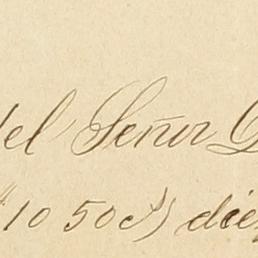 del Señor
$10 50c/) diez